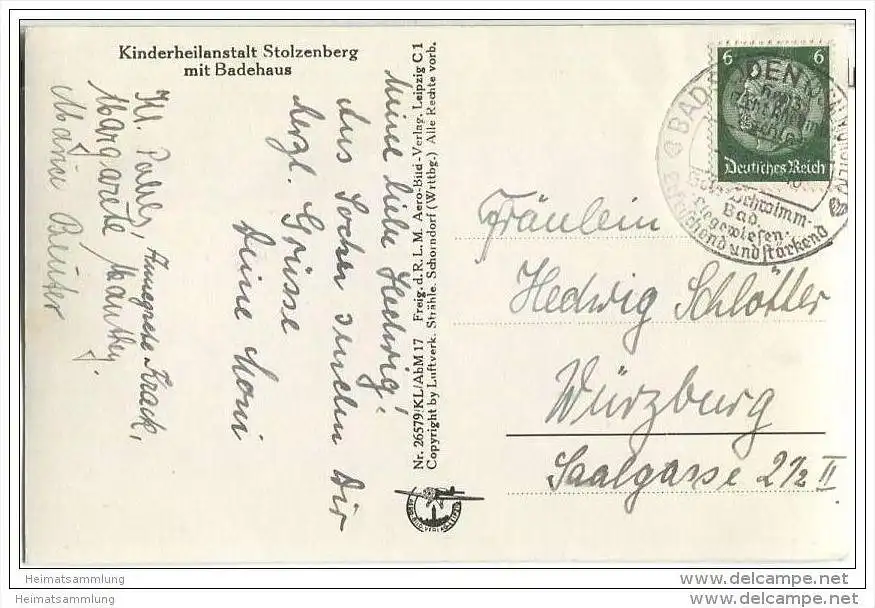 Kinderheilanstalt Stolzenberg
mit Badehaus
Meine liebe Hedwig!
Aus Soden senden Dir
herzl. Grüsse
Deine Loni
Annegrete Krack,
Margarete Manthey,
Maria Beuter
Nr. 26579/KL/AbM 17 Freig. d. R. L. M. Aero-Bild-Verlag, Leipzig C 1
Copyright by Luftverk. Strähle, Schorndorf (Wrttbg.) Alle Rechte vorb.
6 6
Deutsches Reich
BAD SODEN
Schwimm-
Bad
Liegewiesen:
Erfrischend und stärkend
Fräulein
Hedwig Schlötter
Würzburg
Saalgasse 2½ II
Heimatsammlung
www.delcampe.net
Heimatsammlung
www.delcampe.net